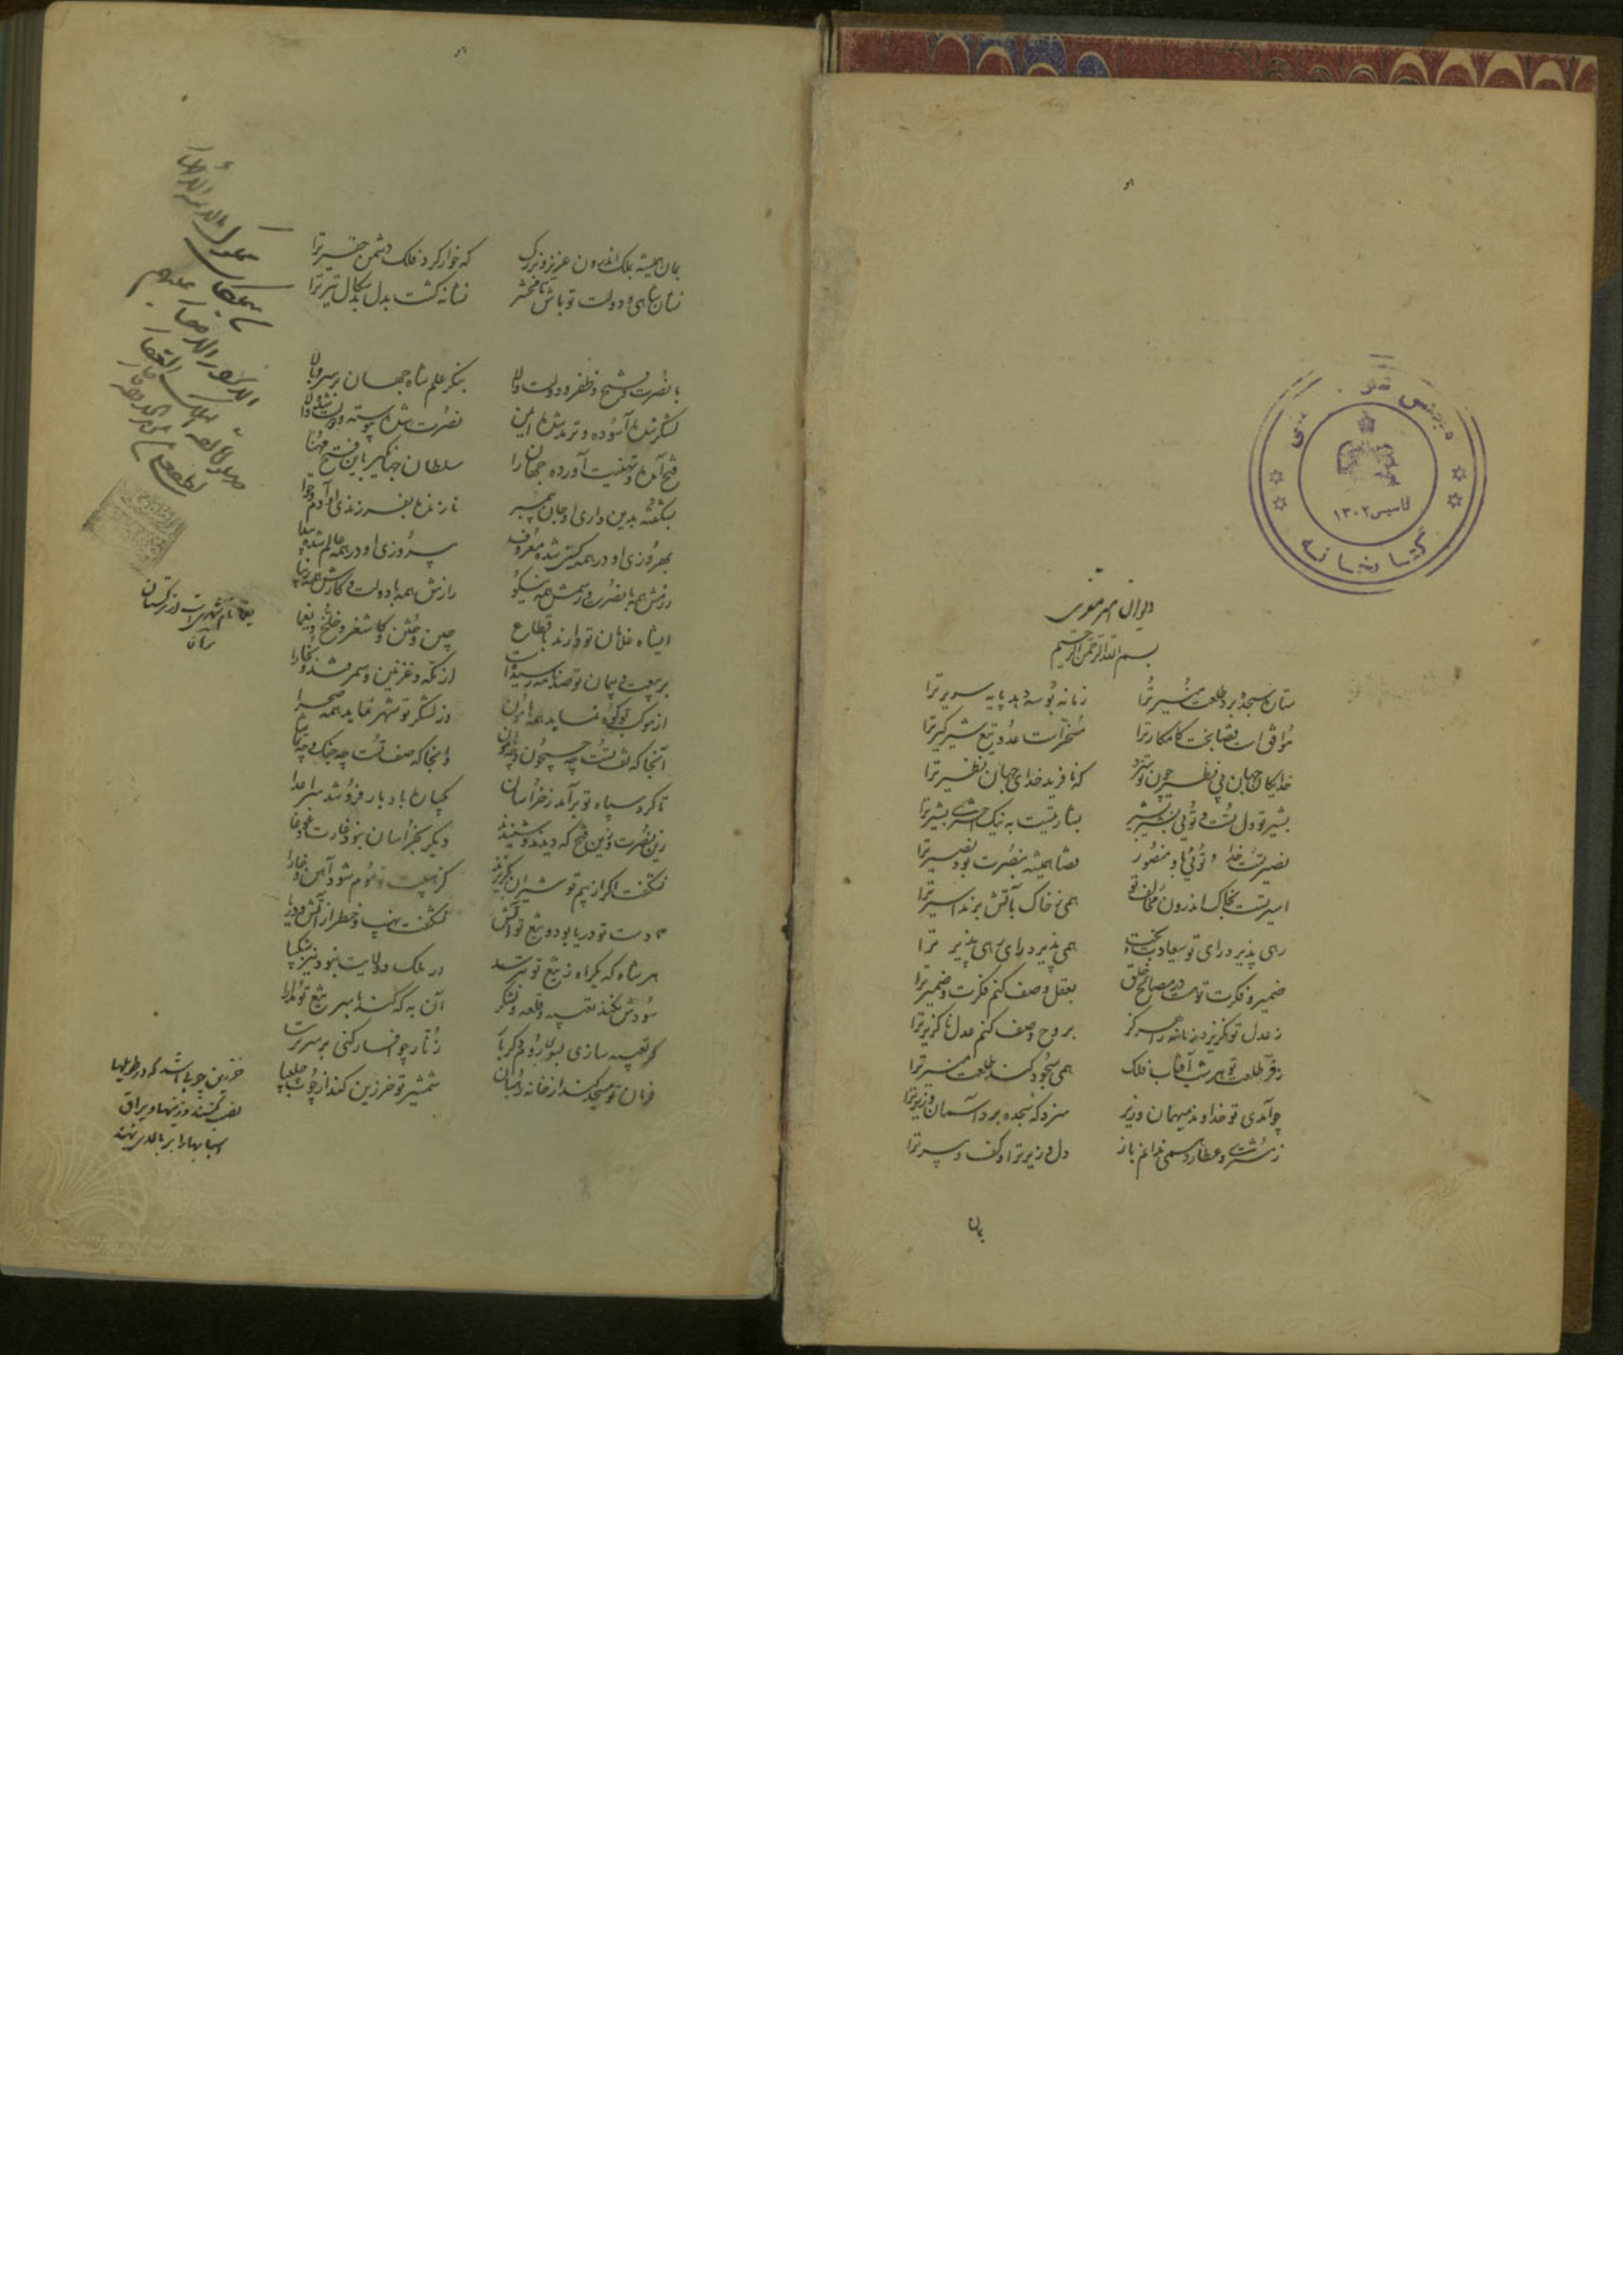 مجلس شورای ملی
تاسیس ۱۳۰۲
کتابخانه
دیوان امیر معزی
بسم الله الرحمن الرحیم
ستاره سجده برد طلعت منیر ترا زمانه بوسه دهد پایه سریر ترا
موافق است قضا بخت کامکار ترا مسخر است عدو تیغ شیرگیر ترا
خدایگان جهان بی نظیر چون تو سزد که نافرید خدای جهان نظیر ترا
بشیر تو دل تست و توئی بشیر بشارتیست به نیک اختری بشیر ترا
نصیر تست خدا و توئی باو منصور قضا همیشه بنصرت بود نصیر ترا
اسیر تست بخاک اندرون مخالف تو همی ز خاک بآتش برند اسیر ترا
رهی پذیرد رای تو سعادت بخت همی پذیرد رای رهی پذیر ترا
ضمیر و فکرت تو هست در مصالح خلق بعقل وصف کنم فکرت و ضمیر ترا
ز عدل تو نگزیرد زمانه را هرگز بروح وصف کنم عدل ناگزیر ترا
ز فر طلعت تو هر شب آفتاب فلک همی سجود کند طلعت منیر ترا
چو آمدی تو خداوند میهمان وزیر سزد که سجده برد آسمان وزیر ترا
ز مشتری و عطارد همی ندانم باز دل وزیر ترا و کف دبیر ترا
بمان
بمان همیشه بملک اندرون عزیز و بزرگ که خوار کرد فلک دشمن حقیر ترا
نشان شاهی و دولت تو باش تا محشر نشانه گشت بدل بدسگال تیر ترا
با نصرت و فتح و ظفر و دولت والا بنگر علم شاه جهان بر سر بالا
لشکرش آسوده و ترمذ شده ایمن نصرت شده پیوسته و دولت شده والا
فتح آمده و تهنیت آورده جهان را سلطان جهانگیر باین فتح مهنا
بشکفته بدین داری او جان پیمبر نازنده بفرزندی او آدم و حوا
بهروزی او در همه گیتی شده معروف پیروزی او در همه عالم شده پیدا
روزش همه با نصرت و رسمش همه نیکو رازش همه با دولت و کارش همه زیبا
ای شاه غلامان تو دارند باقطاع چین و ختن و کاشغر و خلخ و یغما
بر بیعت و پیمان تو صد نامه رسیدست از مکه و غزنین و سمرقند و بخارا
از موکب تو کوه نماید همه هامون وز لشکر تو شهر نماید همه صحرا
آنجا که تف تست چه جیحون و چه هامون و آنجا که صف تست چه جنگ و چه تماشا
تا گرد سپاه تو برآمد ز خراسان یکباره بادبار فرو شد سر اعدا
زین نصرت و زین فتح که دیدند و شنیدند دیگر بخراسان نبود غارت و غوغا
نشگفت اگر از بیم تو شیران بگریزند کز هیبت تو موم شود آهن و خارا
دست تو دریا بود و تیغ تو آتش نشگفت نهیب و خطر از آتش و دریا
هر شاه که یکراه ز تیغ تو بترسد در ملک و ولایت نبود نیز شکیبا
سودش نکند تعبیه و قلعه و لشکر آن به که کند با سر تیغ تو مدارا
گر تعبیه سازی بسوی روم دگر بار زنار چو افسار کنی بر سر ترسا
فرمان تو مسجد کند از خانه رهبان شمشیر تو خرزین کند از چوب چلیپا
یغما نام شهری است از ترکستان
خرزین چوبی باشد که در طویلها
نصب کنند و زینها و یراق
اسبها را بر بالای نهند